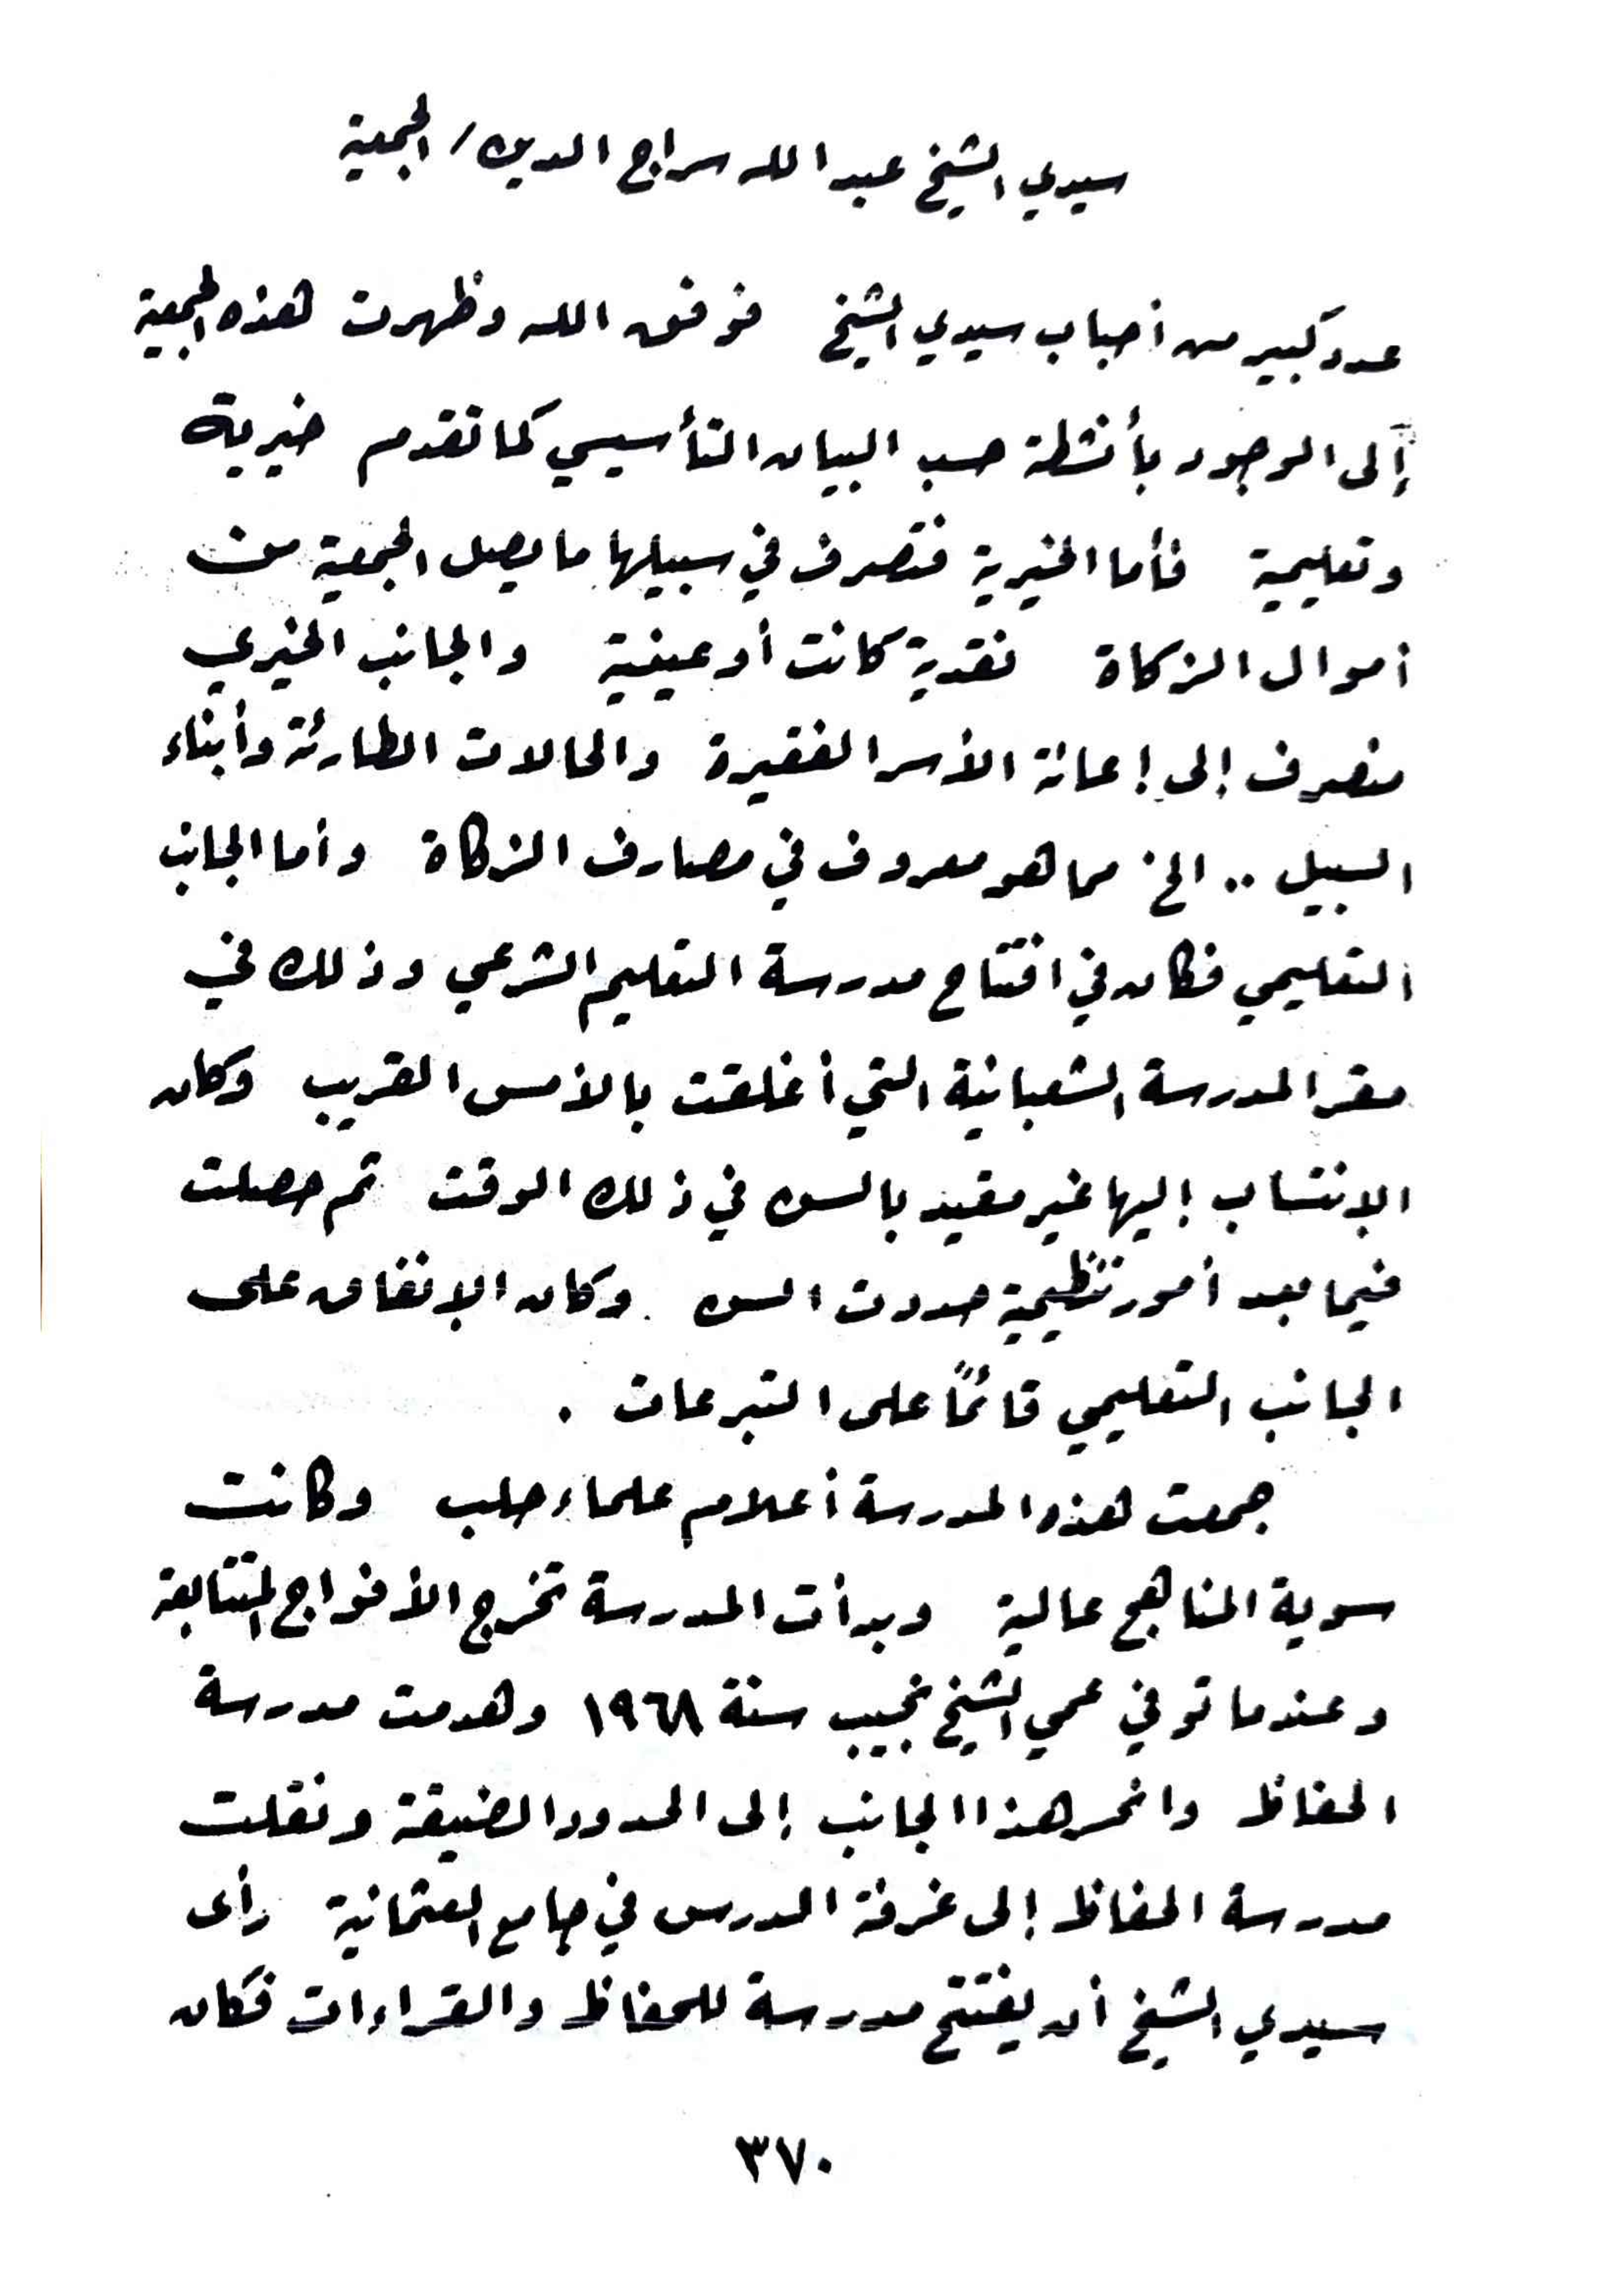 سيدي الشيخ عبد الله سراج الدين / الجمعية
عدد كبير من أحباب سيدي الشيخ فوفق الله وظهرت هذه الجمعية
إلى الوجود بأنشطة حسب البيان التأسيسي كما تقدم خيرية
وتعليمية فأما الخيرية فتصرف في سبيلها ما يصل الجمعية من
أموال الزكاة نقدية كانت أو عينية والجانب الخيري
منصرف إلى إعانة الأسر الفقيرة والحالات الطارئة وأبناء
السبيل .. الخ مما هو معروف في مصارف الزكاة وأما الجانب
التعليمي فكان في افتتاح مدرسة التعليم الشرعي وذلك في
مقر المدرسة الشعبانية التي أغلقت بالأمس القريب وكان
الإنتساب إليها غير مقيد بالسن في ذلك الوقت ثم حصلت
فيما بعد أمور تنظيمية حددت السن . وكان الإنفاق على
الجانب التعليمي قائماً على التبرعات .
جمعت هذه المدرسة أعلام علماء حلب وكانت
سوية المناهج عالية وبدأت المدرسة تخرج الأفواج المتتابعة
وعندما توفي عمي الشيخ نجيب سنة ١٩٦٨ وهدمت مدرسة
الحفاظ وانحسر هذا الجانب إلى الحدود الضيقة ونقلت
مدرسة الحفاظ إلى غرفة المدرس في جامع العثمانية رأى
سيدي الشيخ أن يفتتح مدرسة للحفاظ والقراءات فكان
٣٧٠